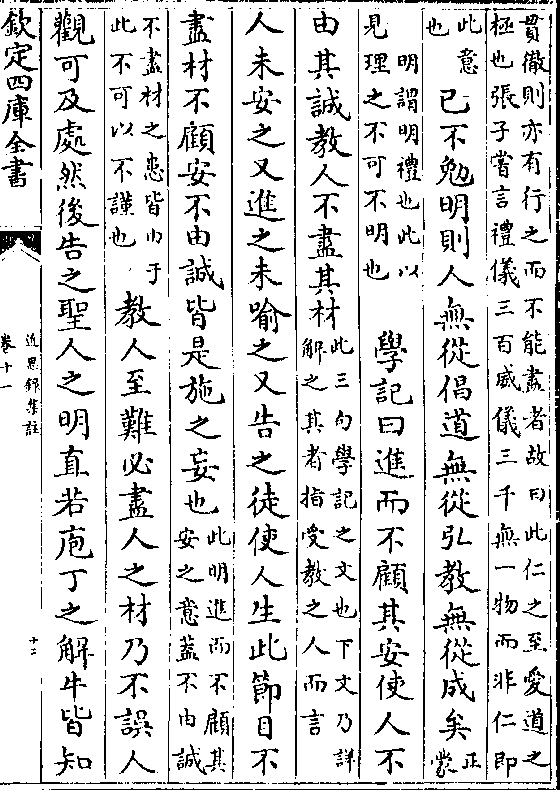 貫徹則亦有行之而不能盡者故曰此仁之至愛道之
極也張子嘗言禮儀三百威儀三千無一物而非仁即
此意
也
己不勉明則人無從倡道無從弘教無從成矣
正
蒙
明謂明禮也此以
見理之不可不明也
學記曰進而不顧其安使人不
由其誠教人不盡其材
此三句學記之文也下文乃詳
解之其者指受教之人而言
人未安之又進之未喻之又告之徒使人生此節目不
盡材不顧安不由誠皆是施之妄也
此明進而不顧其
安之意蓋不由誠
不盡材之患皆由于
此不可以不謹也
教人至難必盡人之材乃不誤人
觀可及處然後告之聖人之明直若庖丁之解牛皆知
欽定四庫全書
近思錄集註
卷十一
十二